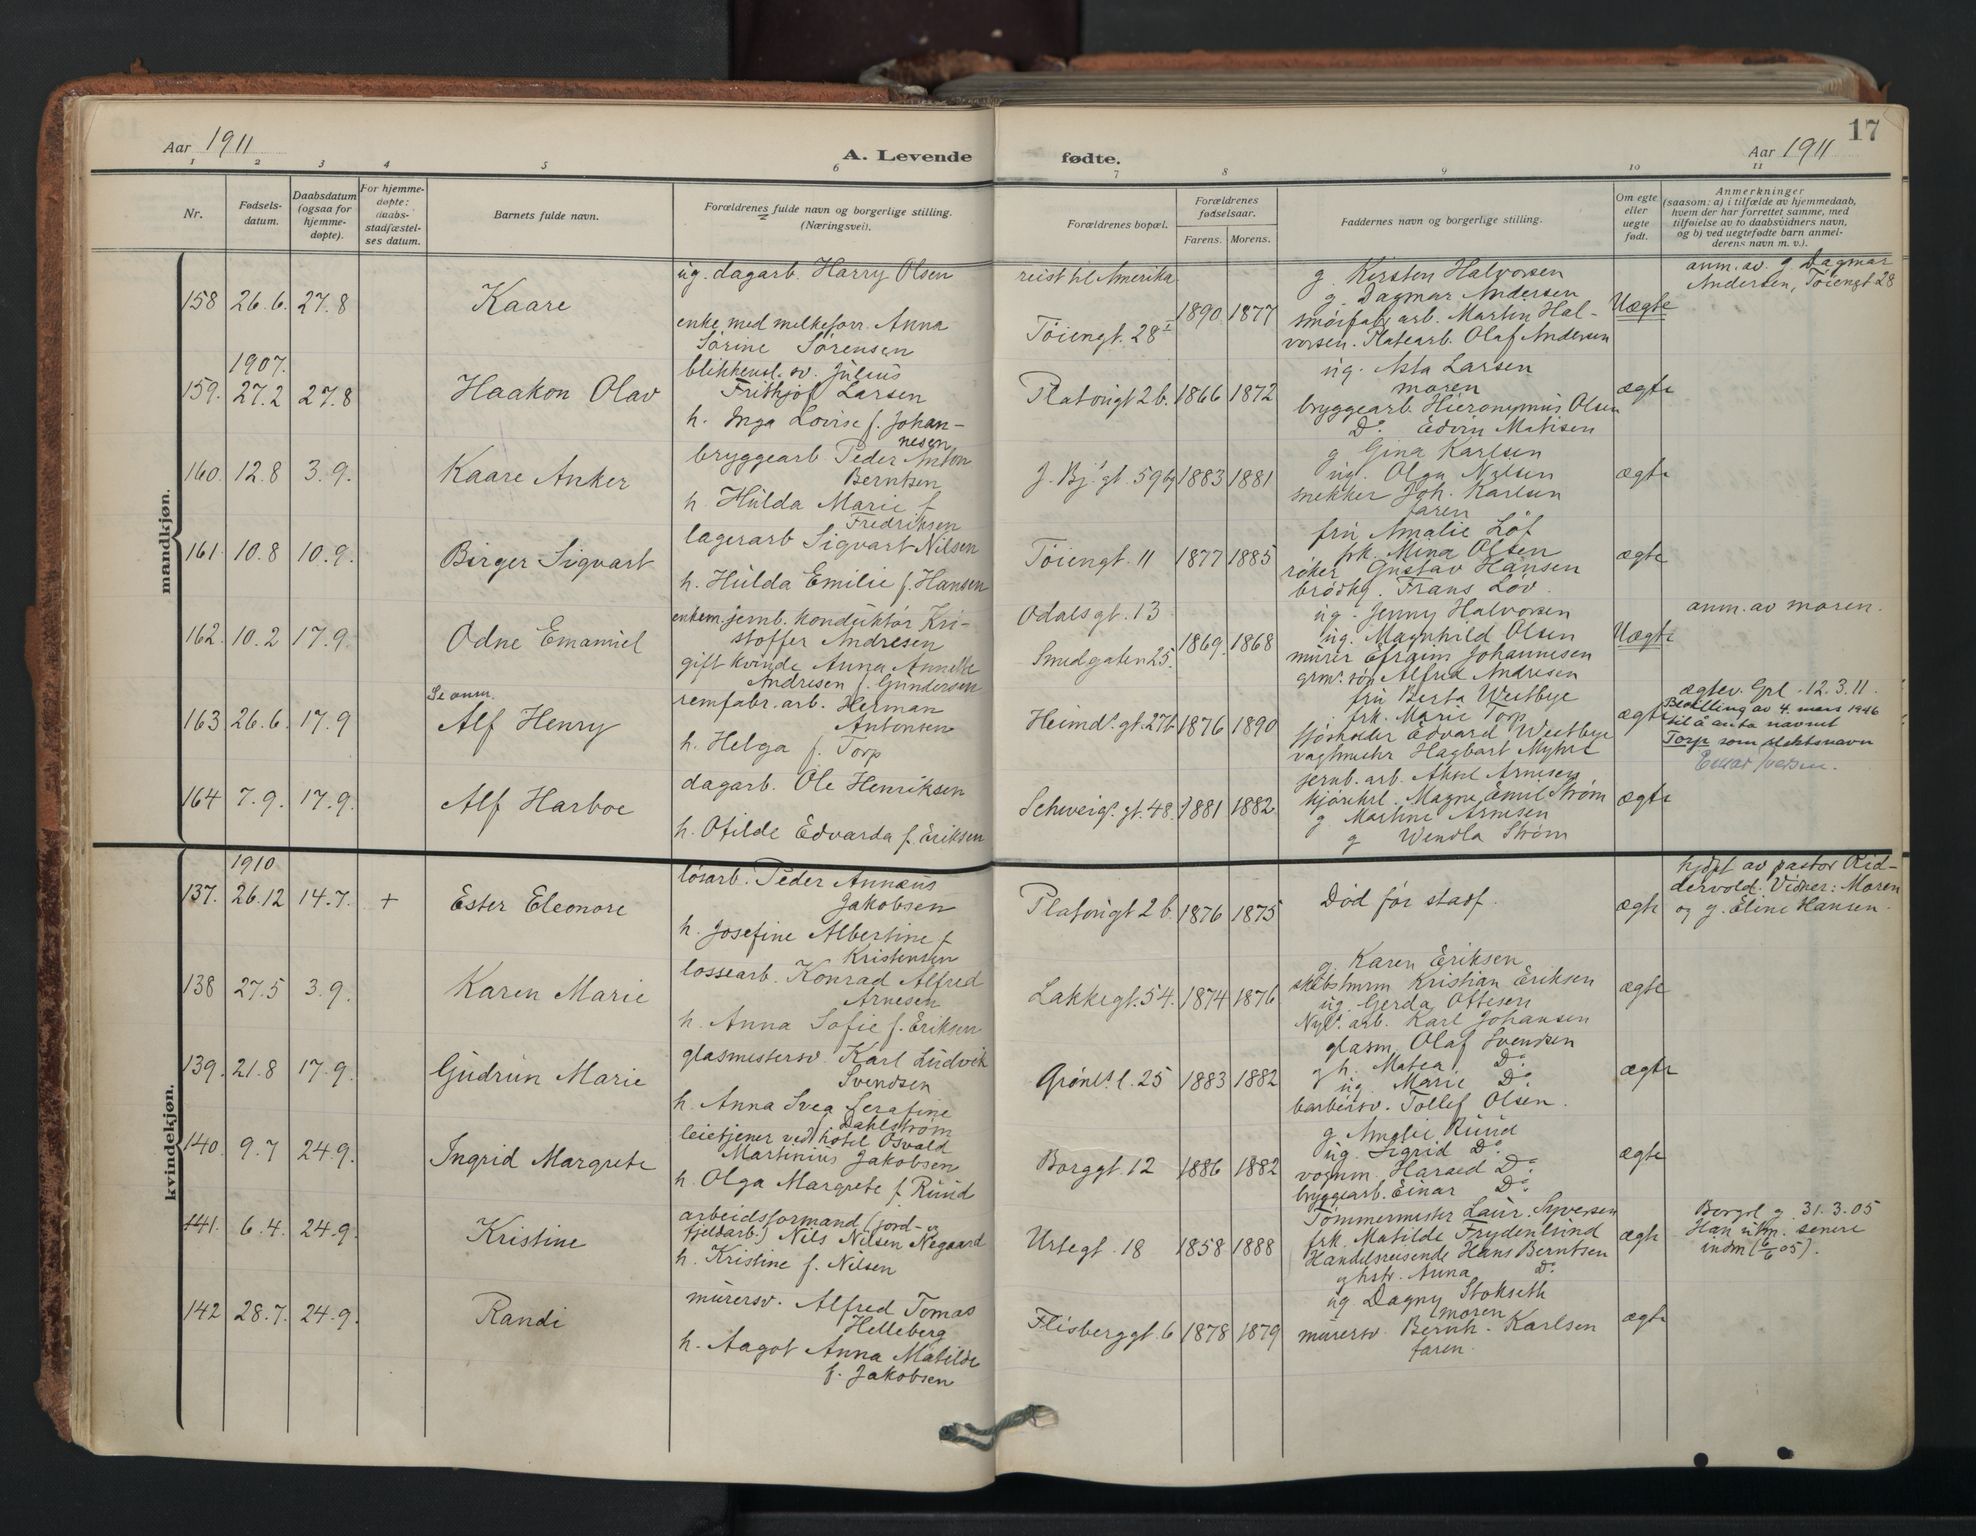 17
Aar 1911
A. Levende fødte.
Aar 1911
1 2 3 4 5 6 7 8 9 10 11
Nr.
Fødsels-
datum.
Daabsdatum
(ogsaa for
hjemme-
døpte).
For hjemme-
døpte:
daabs-
stadfæstel-
ses datum.
Barnets fulde navn.
Forældrenes fulde navn og borgerlige stilling.
(Næringsvei).
Forældrenes bopæl.
Forældrenes
fødselsaar.
Farens. Morens.
Faddernes navn og borgerlige stilling.
Om egte
eller
uegte
født.
Anmerkninger
(saasom: a) i tilfælde av hjemmedaab,
hvem der har forrettet samme, med
tilføielse av to daabsvidners navn,
og b) ved uegtefødte barn anmel-
derens navn m. v.).
mandkjøn.
158 26.6. 27.8
Kaare
ug. dagarb. Harry Olsen
enke med melkeforr. Anna
Sørine Sørensen
reist til Amerika
Tøiengt. 28 I
1890 1877
g. Kirsten Halvorsen
g. Dagmar Andersen
smørfabr. arb. Martin Hal-
vorsen. Platearb. Olaf Andersen
Uægte
anm. av g. Dagmar
Andersen, Tøiengt 28
1907.
159. 27.2 27.8
Haakon Olav
blikkensl. sv. Julius
Frithjof Larsen
h. Inga Lovise f. Johan-
nesen
Platougt 2 b. 1866 1872
ug. Asta Larsen
moren
bryggearb. Hieronymus Olsen
Do. Edvin Matisen
ægte
160. 12.8 3.9.
Kaare Anker
bryggearb. Peder Anton
Berntsen
h. Hulda Marie f
Fredriksen
J. Bj.s gt. 59 b 1883 1881
g Gina Karlsen
ug. Olga Nilsen
snekker Joh. Karlsen
faren
ægte
161. 10.8 10.9.
Birger Sigvart
lagerarb Sigvart Nilsen
h. Hulda Emilie f. Hansen
Tøiengt. 11 1877 1885
fru Amalie Löf
frk. Mina Olsen
Gustav Hansen
Frans Löv.
ægte
162. 10.2 17.9.
Odne Emanuel
enkem. jernb. konduktør Kri-
stoffer Andresen
gift kvinde Anna Annette
Andresen f. Gundersen
Odalsgt. 13
Smedgaten 25. 1869. 1868
ug. Jenny Halvorsen
ug. Magnhild Olsen
murer Efraim Johannesen
Alfred Andresen
Uægte
anm. av moren.
Se anm.
163 26.6 17.9
Alf Henry
remfabr. arb. Herman
Antonsen
h. Helga f. Torp
Heimds. gt. 27 b 1876 1890
fru Berta Westbye
frk. Marie Torp
Edvard Westbye
vagtmstr Hagbart Myhre
ægte
ægtev. Grl. 12.3.11.
Bevilling av 4. mars 1946
til å anta navnet
Torp som slektsnavn
164 7.9. 17.9.
Alf Harboe
dagarb. Ole Henriksen
h. Otilde Edvarda f. Eriksen
Schweigs. gt. 48. 1881 1882
jernb. arb. Aksel Arnesen
Magne Emil Strøm
g Martine Arnesen
g Wendla Strøm
ægte
kvindekjøn.
1910.
137. 26.12 14.7. +
Ester Eleonore
løsarb. Peder Annæus
Jakobsen
h. Josefine Albertine f
Kristensen
Platougt 2 b. 1876 1875
Død før stadf.
ægte
hjdpt av pastor Rid-
dervold. Vidner: Moren
og g. Eline Hansen.
138 27.5 3.9.
Karen Marie
lossearb. Konrad Alfred
Arnesen
h. Anna Sofie f. Eriksen
Lakkegt. 54. 1874 1876
g. Karen Eriksen
Kristian Eriksen
ug. Gerda Ottesen
Nyl. arb. Karl Johansen
ægte
139. 21.8 17.9.
Gudrun Marie
glasmestersv. Karl Ludvik
Svendsen
h. Anna Svea Serafine
f. Dahlström
Grønl.s l. 25 1883 1882
glasm Olaf Svendsen
gh. Matea Do.
ug. Marie Do.
barbersv. Tollef Olsen.
ægte
140. 9.7 24.9.
Ingrid Margrete
leietjener ved hotel Osvald
Martinius Jakobsen
h. Olga Margrete f. Ruud
Borggt. 12 1886 1882
g Amalie Ruud
ug. Sigrid Do.
vognm. Harald Do.
bryggearb. Einar Do.
ægte
141. 6.4. 24.9.
Kristine
arbeidsformand (jord- og
fjeldarb.) Nils Nilsen Negaard
h. Kristine f. Nilsen
Urtegt. 18 1858 1888
Tømmermester Laur. Syversen
frk. Matilde Frydenlund
Handelsreisende Hans Berntsen
ghstr. Anna Do.
ægte
Borgrl g. 31.3.05
Han utm. senere
indm (6/6 05).
142 28.7. 24.9.
Randi
murersv. Alfred Tomas
Helleberg
h. Aagot Anna Matilde
f. Jakobsen
Flisberggt. 6 1878 1879
ug Dagny Stokseth
moren
murersv Bernh. Karlsen
faren.
ægte